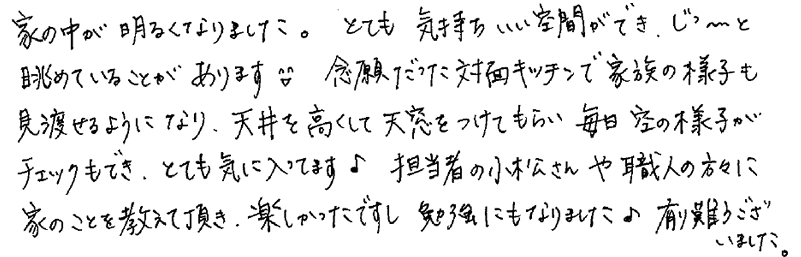 家の中が明るくなりました。とても気持ちいい空間ができ、じっ〜と
眺めていることがあります 念願だった対面キッチンで家族の様子も
見渡せるようになり、天井を高くして天窓をつけてもらい毎日空の様子が
チェックもでき、とても気に入ってます♪ 担当者の小松さんや職人の方々に
家のことを教えて頂き、楽しかったですし勉強にもなりました♪ 有り難うござ
いました。